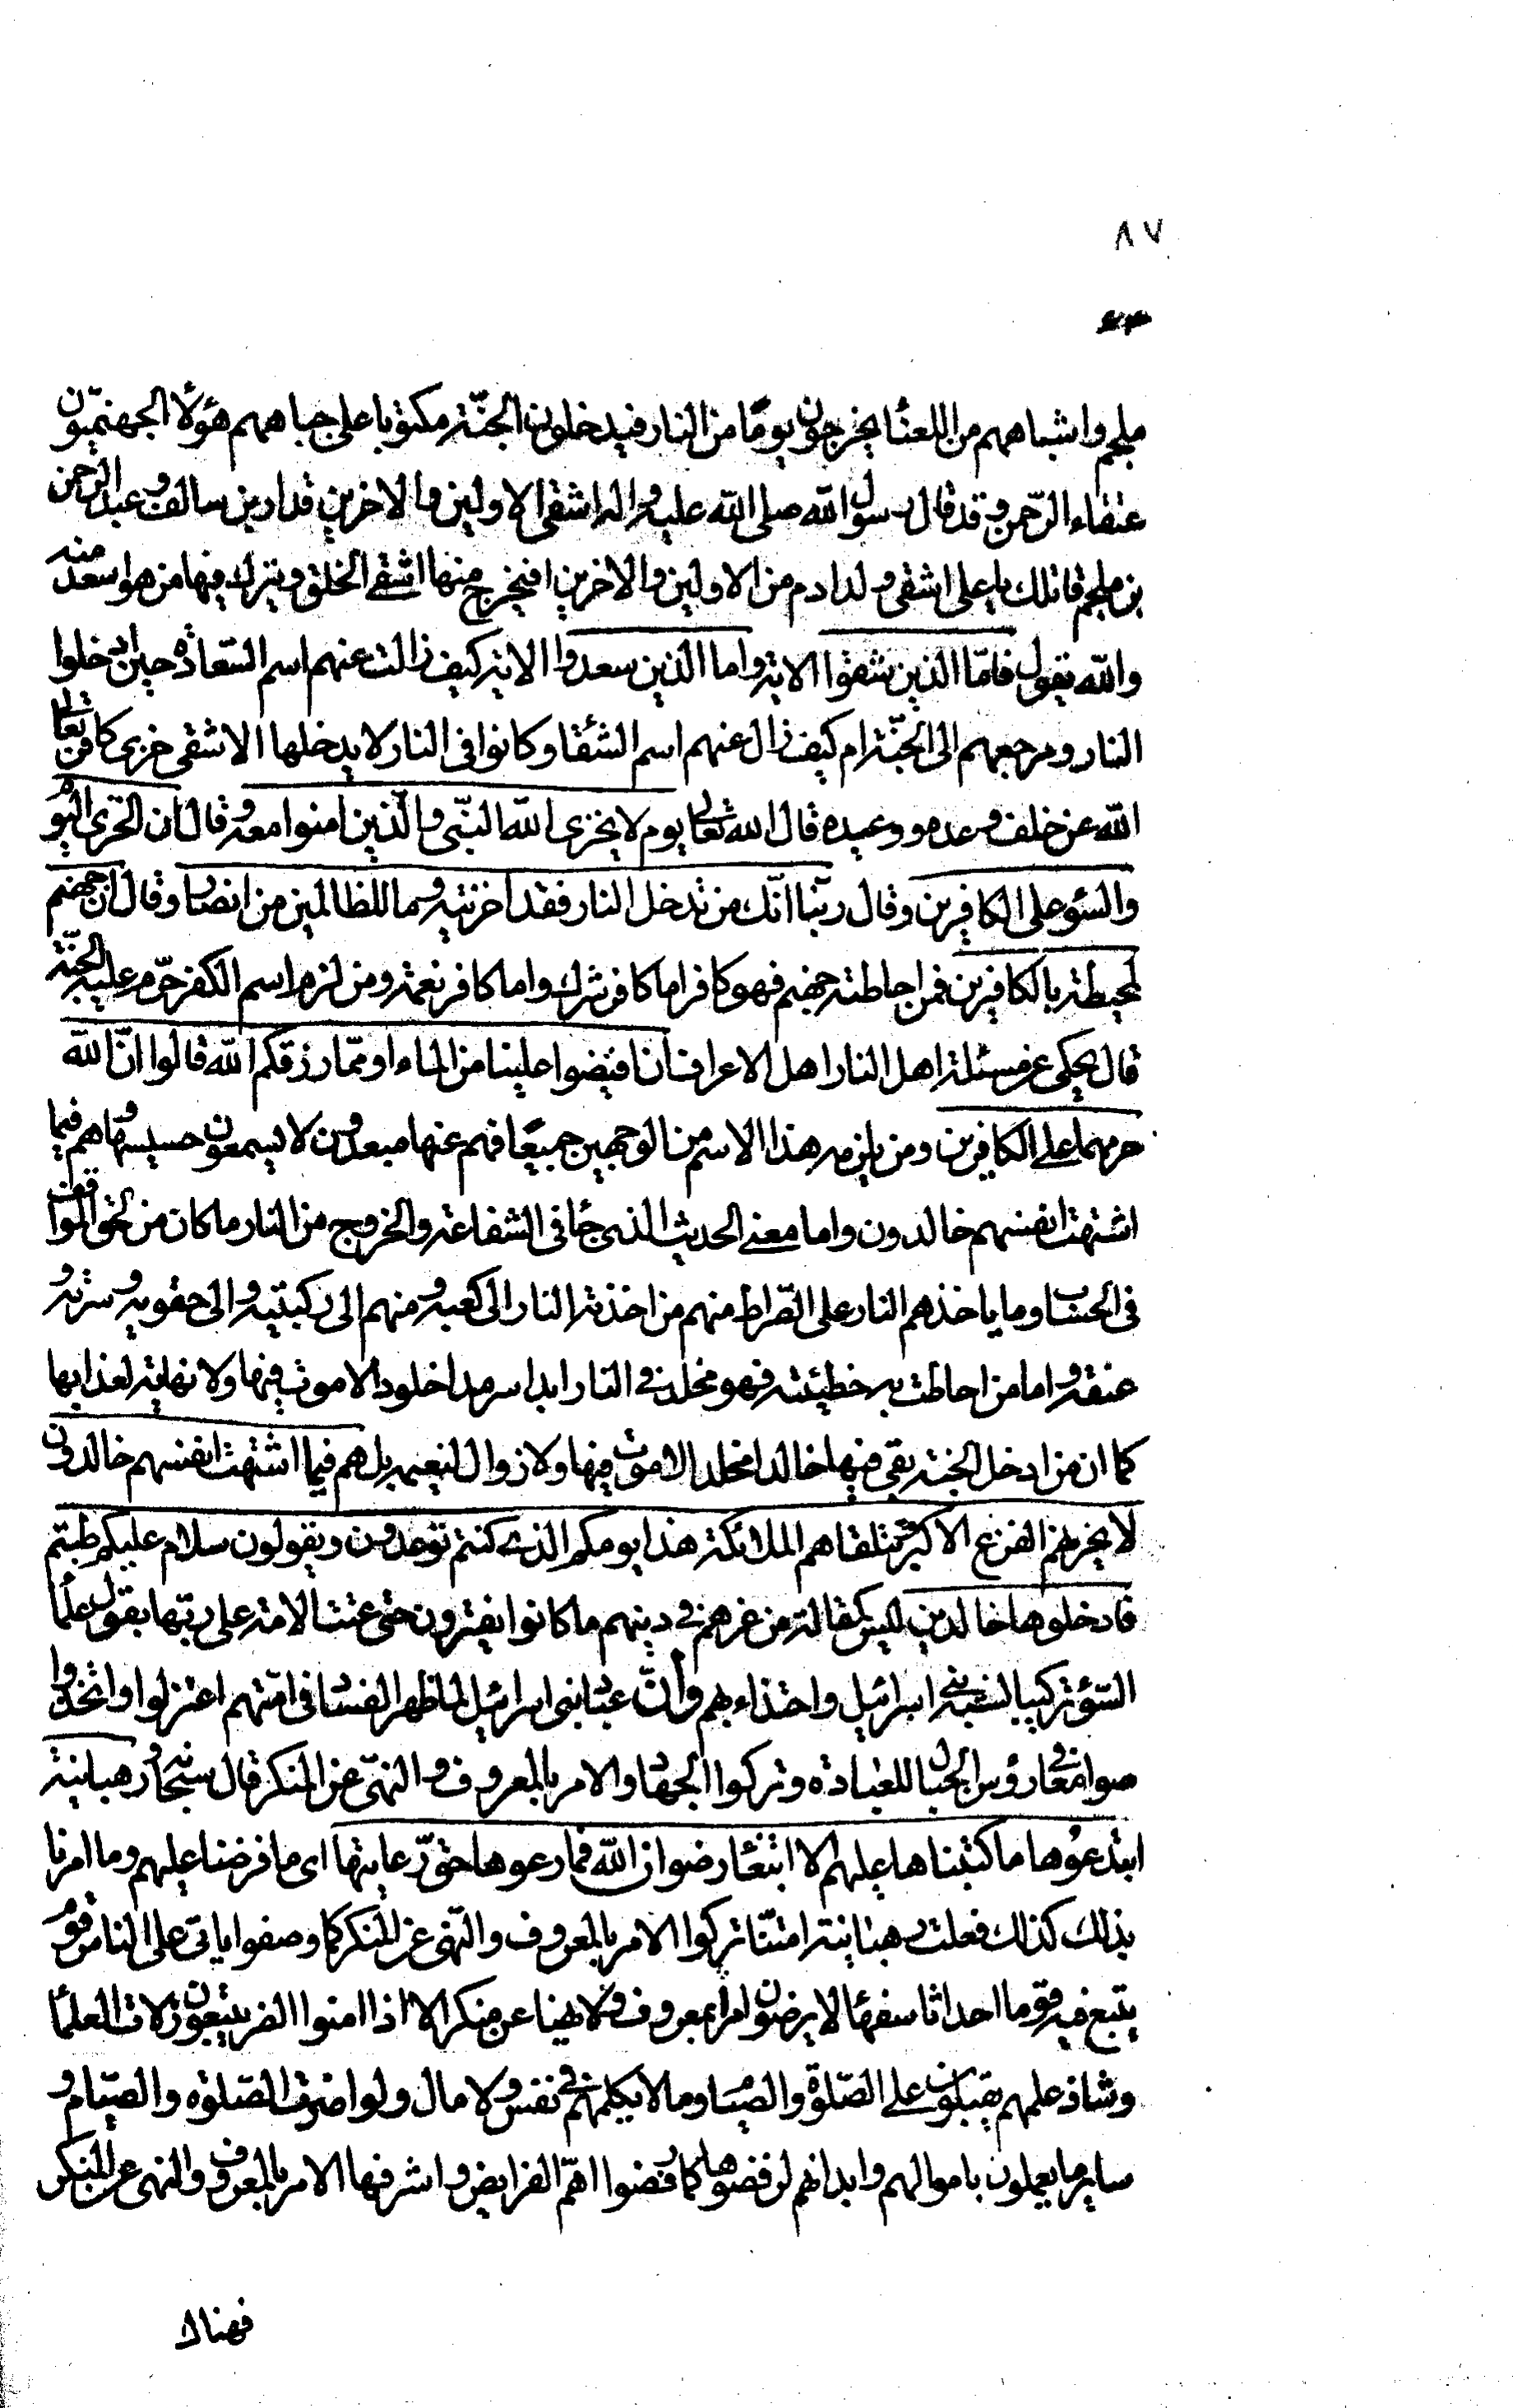 ٨٧
ملجم واشباههم من اللعنا يخرجون يومًا من النار فيدخلون الجنّة مكتوبا على جباههم هؤلا الجهنميّون
عتقاء الرّحمن وقد قال رسول الله صلى الله عليه واله اشقى الاولين والاخرين قدار بن سالف وعبد الرحمن
بن ملجم قاتلك يا على اشقى ولد ادم من الاولين والاخرين افيخرج منها اشقى الخلق ويترك فيها من هو اسعد منه
والله يقول فامّا الذين شقوا الاية واما الذين سعدوا الاية كيف زالت عنهم اسم السّعادة حين ادخلوا
النار ومرجعهم الى الجنّة ام كيف زال عنهم اسم الشقا وكانوا فى النار لا يدخلها الا شقى خزى كافر تعالى
الله عن خلف وعده ووعيده قال الله تعالى يوم لا يخزى الله النبّى والّذين امنوا معه وقال ان الخزى اليوم
والسؤ على الكافرين وقال ربّنا انّك من تدخل النار فقد اخزيته وما للظالمين من انصار وقال ان جهنم
لمحيطة بالكافرين فمن احاطته جهنم فهو كافر اما كافر شرك واما كافر نعمة ومن لزم اسم الكفر حرّم عليه الجنّة
قال يحكى عن مسئلة اهل النار اهل الاعراف ان افيضوا علينا من الماء او ممّا رزقكم الله قالوا انّ الله
حرمهما على الكافرين ومن يلزمه هذا الاسم من الوجهين جميعًا فهم عنها مبعدون لا يسمعون حسيسها وهم فيما
اشتهت انفسهم خالدون واما معنى الحديث الذى جا فى الشفاعة والخروج من النار ما كان من نحو المواقف
فى الحساب وما ياخذهم النار على الصّراط منهم من اخذته النار الى كعبه ومنهم الى ركبتيه والى حقويه وسرته و
عنقه واما من احاطت به خطيئته فهو مخلد فى النار ابدا سرمدا خلود الا موت فيها ولا نهاية لعذابها
كما ان من ادخل الجنة بقى فيها خالدا مخلدا لا موت فيها ولا زوال لنعيمه بل هم فيما اشتهت انفسهم خالدون
لا يحزنهم الفزع الاكبر وتتلقاهم الملائكة هذا يومكم الذى كنتم توعدون ويقولون سلام عليكم طبتم
فادخلوها خالدين اليس كمقالة من غرهم فى دينهم ما كانوا يفترون حتى عتت الامة على ربّها بقول علما
السّؤ تركيبا لسنة بنى اسرائيل واحتذاء بهم وأنّ عباد بنى اسرائيل لما ظهر الفساد فى امّتهم اعتزلوا واتخذوا
صوامع فى رؤس الجبال للعبادة وتركوا الجهاد والامر بالمعروف والنهى عن المنكر قال سبحانه ورهبانية
ابتدعوها ما كتبناها عليهم الا ابتغا رضوان الله فما رعوها حقّ رعايتها اى ما فرضنا عليهم وما امرنا
بذلك كذلك فعلت رهبانية امتنا تركوا الامر بالمعروف والنّهى عن المنكر كما وصفوا ياتى على الناس قوم
يتبع فيه قوما احداثا سفهًا لا يرضون امرا بمعروف ولا نهيا عن منكر الا اذا امنوا الضر يتبعون زلات العلمًا
وشاذ علمهم يقبلون على الصّلوة والصيام وما لا يكلمهم فى نفس ولا مال ولو اضرت الصّلوه والصّيام و
ساير ما يعملون باموالهم وابدانهم لرفضوها كما رفضوا اهمّ الفرايض واشرفها الامر بالمعروف والنهى عن المنكر
فهنالك